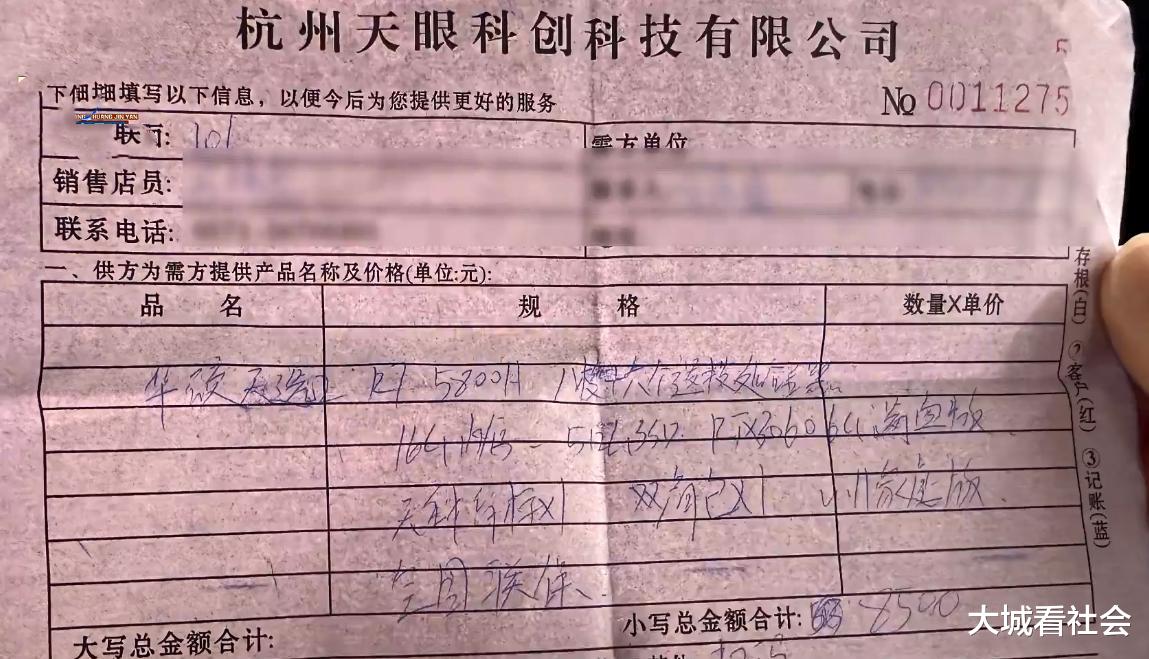 杭州天眼科创科技有限公司
5
下佃细填写以下信息，以便今后为您提供更好的服务
No 0011275
HUANG JIN YAN
101
需方单位
销售店员:
联系电话:
一、供方为需方提供产品名称及价格(单位:元):
品 名 规 格 数量X单价
华硕天选2 R7 5800H 八核十六线程处理器
16G内存 512G SSD RTX3060 6G 满血版
无线鼠标X1 双肩包X1 W11家庭版
全国联保
存根(白) ②客户(红) ③记账(蓝)
大写总金额合计:
小写总金额合计: 8500
大城看社会